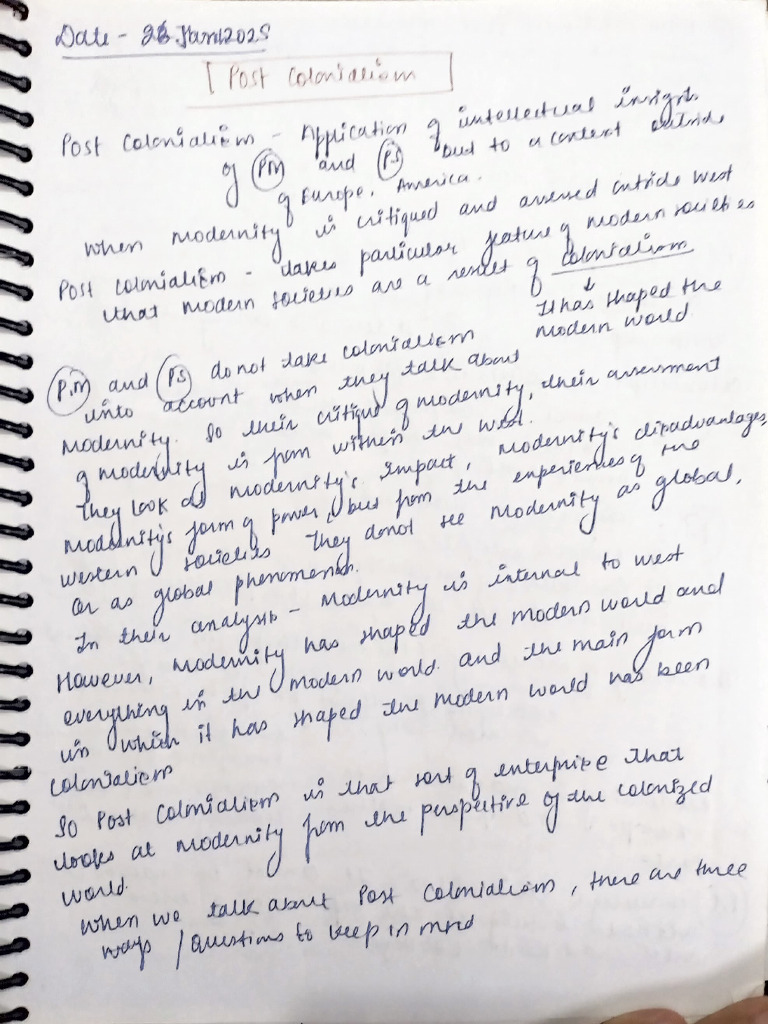 Date - 28 Jan 2025
[Post Colonialism]
Post Colonialism - Application of intellectual insights
of (PM) and (PS) but to a context outside
of Europe, America.
When modernity is critiqued and assessed outside West
Post Colonialism - takes particular feature of modern societies
that modern societies are a result of colonialism
↓
It has shaped the
modern world
(P.M) and (PS) do not take colonialism
into account when they talk about
Modernity. So their critique of modernity, their assessment
of modernity is from within the West.
They look at modernity's impact, modernity's disadvantages,
modernity's form of power, but from the experiences of the
western societies They donot see modernity as global,
or as global phenomena.
In their analysis - Modernity is internal to west
However, modernity has shaped the modern world and
everything in the modern world and the main form
in which it has shaped the modern world has been
Colonialism
So Post Colonialism is that sort of enterprise that
looks at modernity from the perspective of the colonized
world.
When we talk about Post Colonialism, there are three
ways / Questions to keep in mind